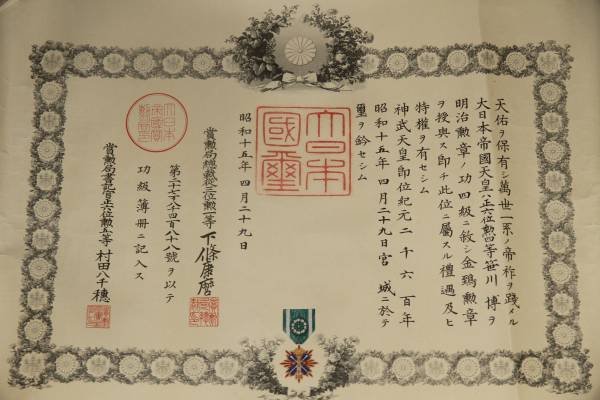 天佑ヲ保有シ萬世一系ノ帝祚ヲ踐メル
大日本帝國天皇ハ正六位勲四等笹川博ヲ
明治勲章ノ功四級ニ敘シ金鵄勲章
ヲ授與ス即チ此位ニ屬スル禮遇及ヒ
特權ヲ有セシム
神武天皇即位紀元二千六百年
昭和十五年四月二十九日宮城ニ於テ
璽ヲ鈐セシム
大日本
國璽
昭和十五年四月二十九日
賞勲局總裁從三位勲一等下條康麿
第二十七八千四百八十八號ヲ以テ
功級簿冊ニ記入ス
賞勲局書記官正六位勲五等村田八千穂